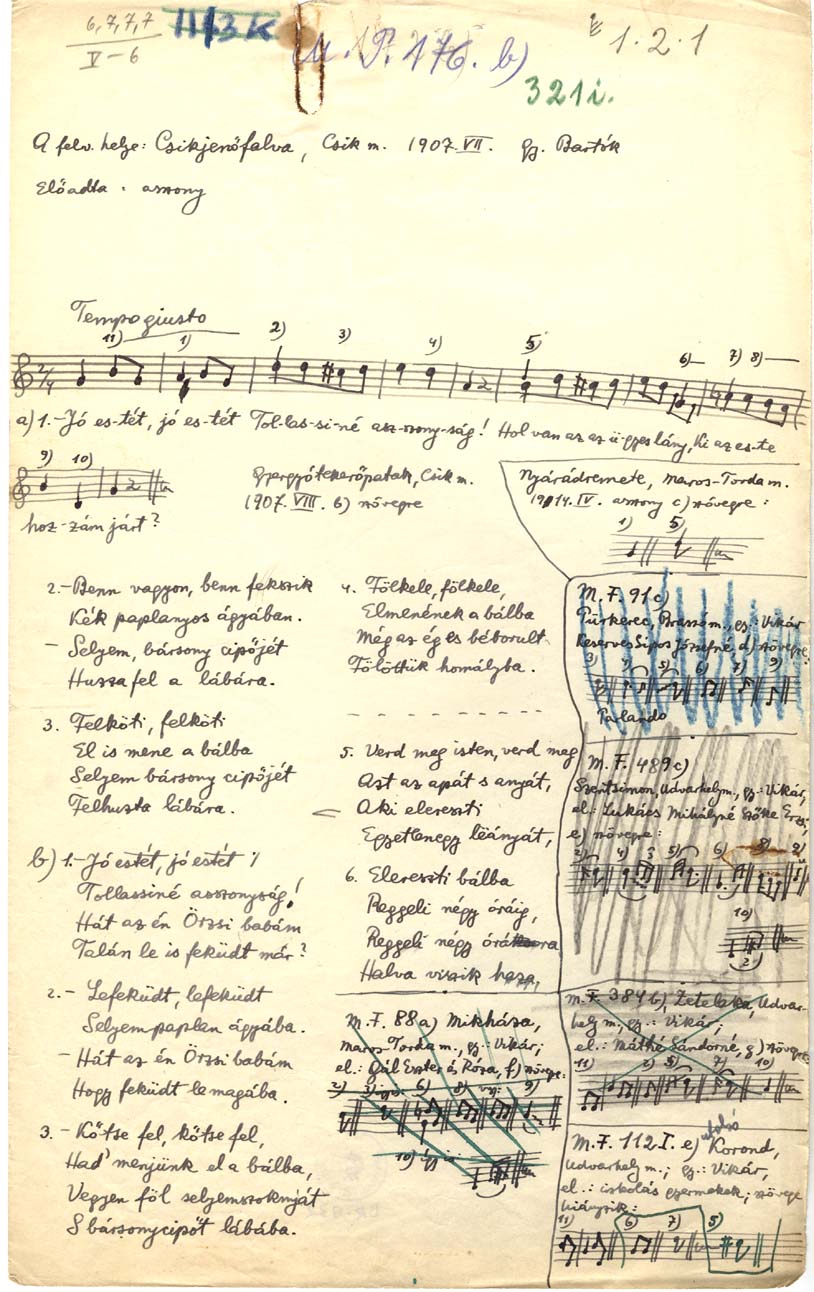 6,7,7,7
V-6
II/3 K
M. P. 176. b)
1.2.1
321i.
A felv. helye: Csikjenőfalva, Csik m. 1907. VII. gy. Bartók
Előadta: asszony
Tempo giusto
11) 1) 2) 3) 4) 5) 6) 7) 8)
2/4
a) 1.-Jó es-tét, jó es-tét Tol-las-si-né asz-szony-ság! Hol van az az ü-gyes lány, Ki az es-te
9) 10)
hoz-zám járt?
Gyergyótekerőpatak, Csik m.
1907. VIII. b) szövegre
Nyárádremete, Maros-Torda m.
1914. IV. asszony c) szövegre:
1) 5)
2.- Benn vagyon, benn fekszik
Kék paplanyos ágyában.
- Selyem, bársony cipőjét
Huzza fel a lábára.
3. Felköti, felköti
El is mene a bálba
Selyem bársony cipőjét
Felhuzta lábára.
b) 1.-Jó estét, jó estét
Tollassiné asszonyság!
Hát az én Örzsi babám
Talán le is feküdt már?
2.- Lefeküdt, lefeküdt
Selyempaplan ágyába.
- Hát az én Örzsi babám
Hogy feküdt le magába.
3.- Kőtse fel, kőtse fel,
Had' menjünk el a bálba,
Vegyen föl selyemszoknyát
S bársonycipőt lábába.
4. Fölkele, fölkele,
Elmenének a bálba
Még az ég es béborult
Fölöttük homályba.
5. Verd meg isten, verd meg
Azt az apát s anyát,
Aki elereszti
Egyetlenegy lëányát,
6. Elereszti bálba
Reggeli négy óráig,
Reggeli négy órára
Halva viszik haza,
M. F. 88a) Mikháza,
Maros-Torda m., gy.: Vikár;
el.: Gál Eszter és Róza, f) szövegre:
6) 8) 9)
10)
M. F. 91c)
Pürkerec, Brassó m., gy.: Vikár
Keserves Sipos Józsefné, d) szövegre:
3) 1) 5) 6) 7) 9)
Parlando
M. F. 489c)
Szentsimon, Udvarhely m., gy.: Vikár,
el.: Lukács Mihályné Szőke Erzsi,
e) szövegre:
2) 4) 3 5) 6) 8) 9)
10)
2
M. F. 384b), Zetelaka, Udvar-
hely m; gy.: Vikár;
el.: Máthé Sándorné, g) szövegre
11) 5) 7) 10)
M. F. 112 I. e) utolsó Korond,
Udvarhely m.; gy.: Vikár,
el.: iskolás gyermekek; szövege
hiányzik:
11) 6) 7) 5)